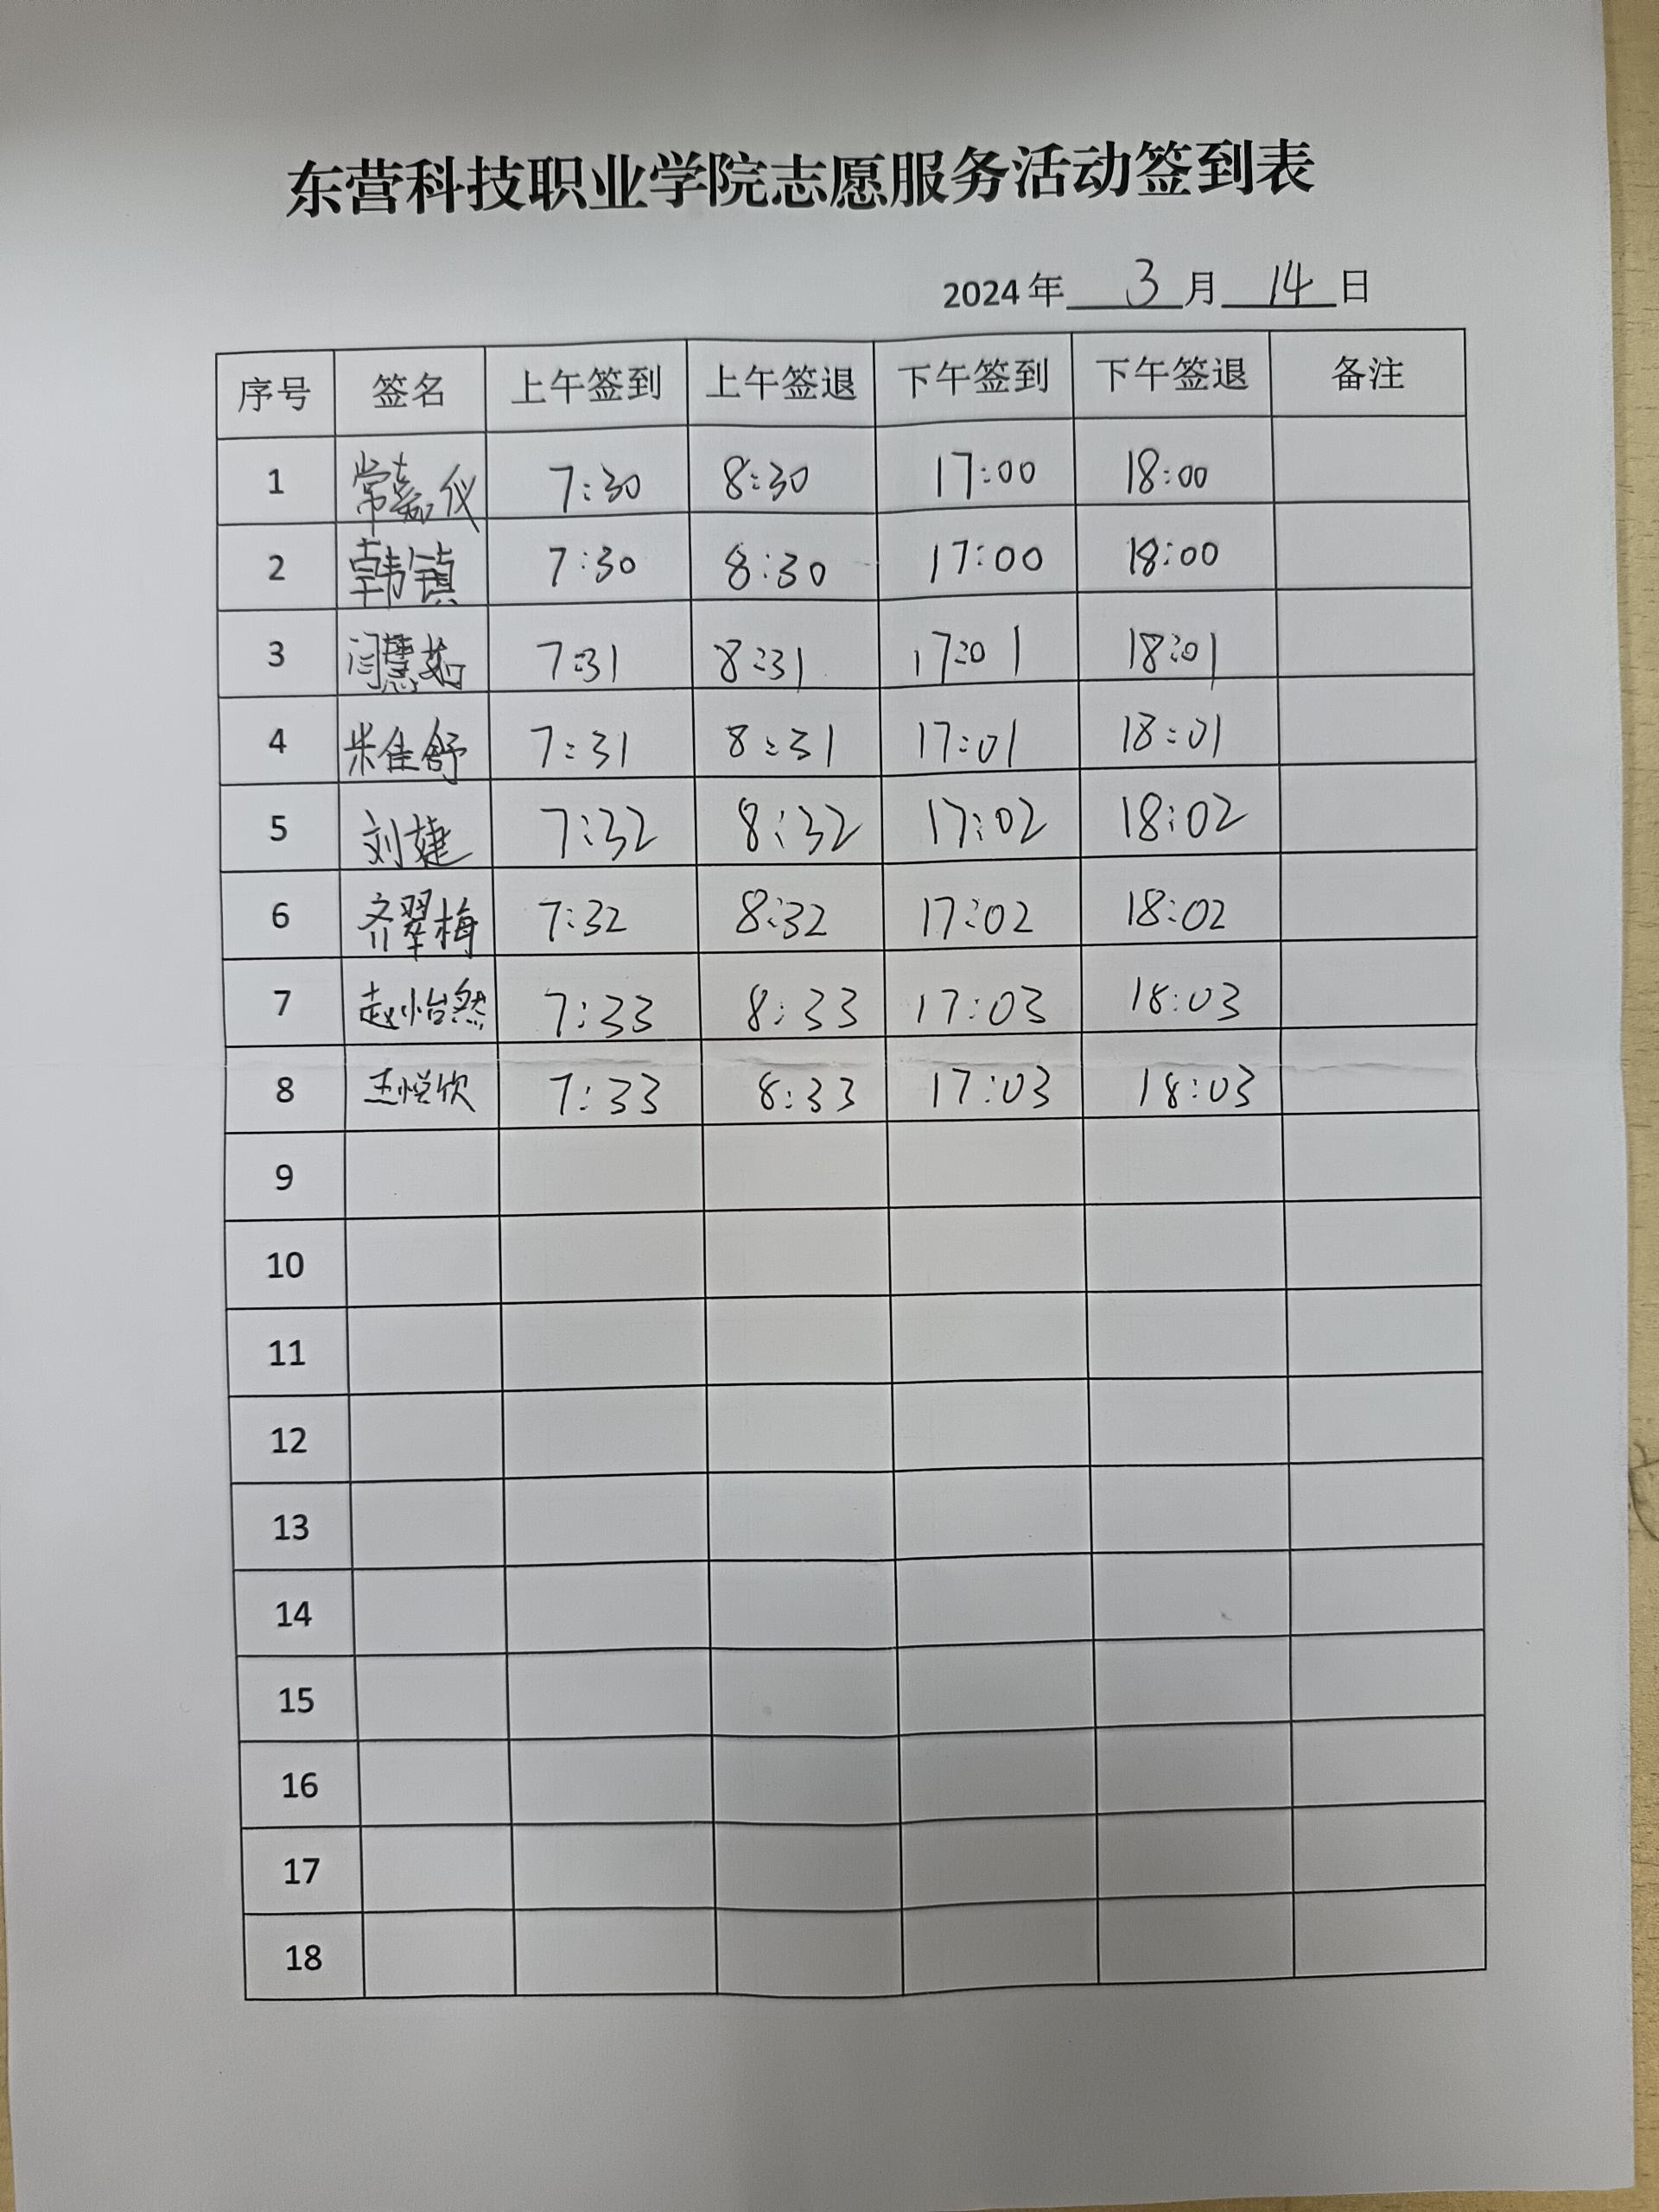 东营科技职业学院志愿服务活动签到表
2024年 3 月 14 日
序号 签名 上午签到 上午签退 下午签到 下午签退 备注
1 常嘉仪 7:30 8:30 17:00 18:00
2 韩镇 7:30 8:30 17:00 18:00
3 闫慧茹 7:31 8:31 17:01 18:01
4 米佳舒 7:31 8:31 17:01 18:01
5 刘婕 7:32 8:32 17:02 18:02
6 齐翠梅 7:32 8:32 17:02 18:02
7 赵怡然 7:33 8:33 17:03 18:03
8 王悦欣 7:33 8:33 17:03 18:03
9
10
11
12
13
14
15
16
17
18